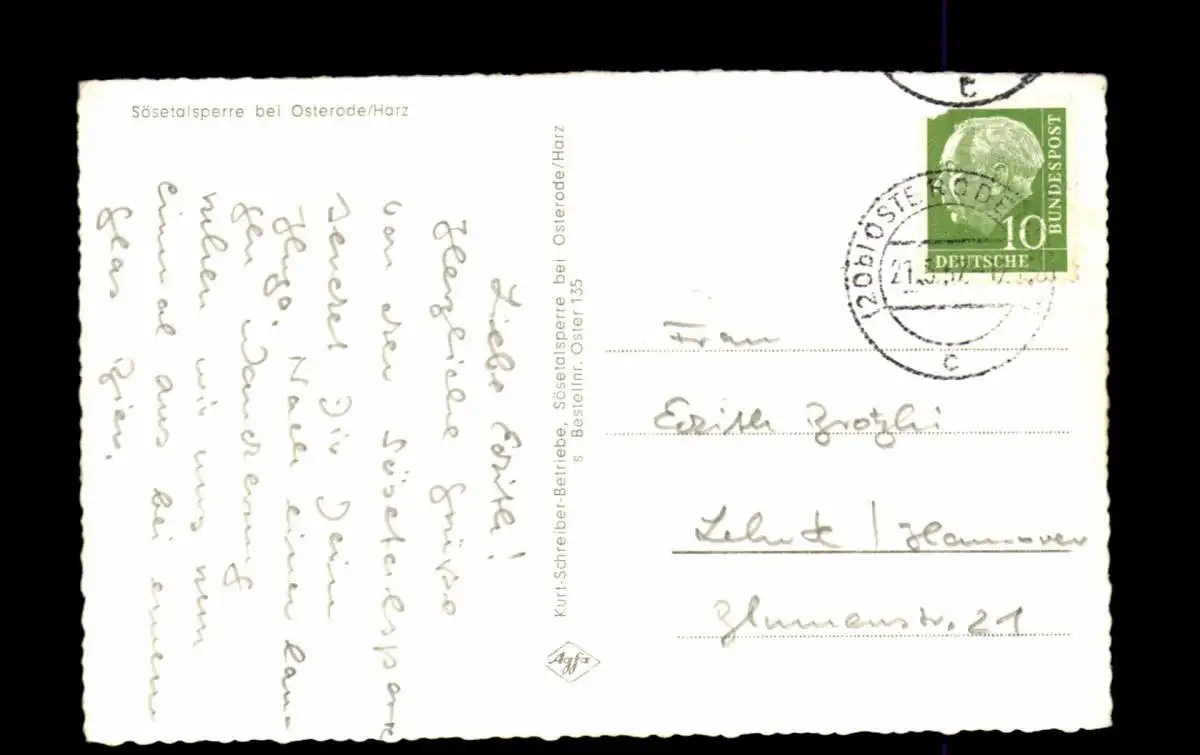 Sösetalsperre bei Osterode/Harz
Liebe Edith!
Herzliche Grüße
von der Sösetalsperre
sendet Dir Dein
Hugo. Nach einer lan-
gen Wanderung
ruhen wir uns nun
einmal aus bei einem
Glas Bier.
Kurt-Schreiber-Betriebe, Sösetalsperre bei Osterode/Harz
s Bestellnr. Oster 135
Agfa
t
BUNDESPOST
10
DEUTSCHE
(20b) OSTERODE
21.5.57
c
Frau
Edith
Lehrte / Hannover
Blumenstr. 21